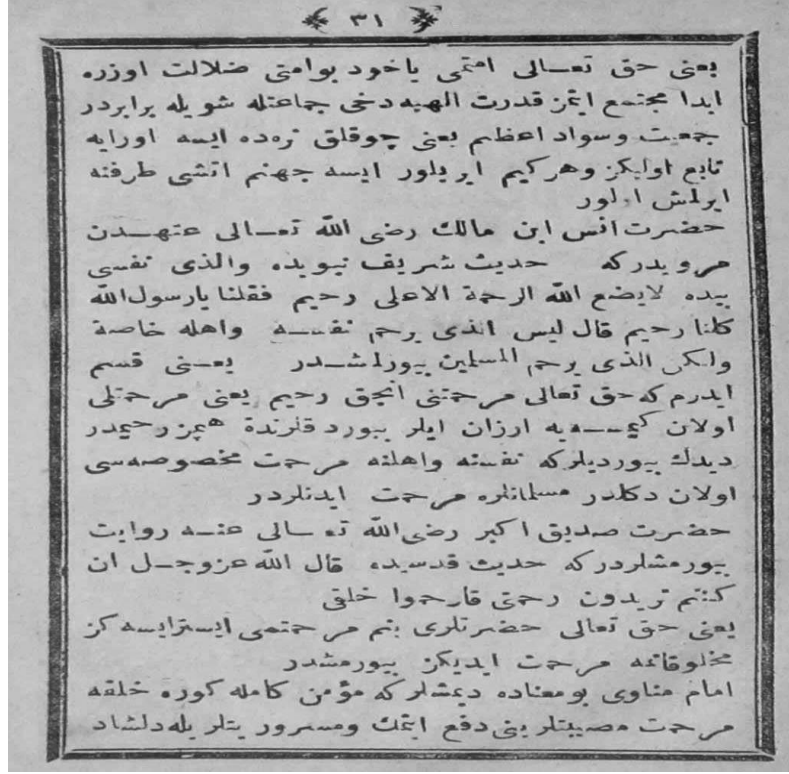 ٣١
يعنى حق تعالى امتمى ياخود بوامتى ضلالت اوزره
ابدا مجتمع ايتمز قدرت الهيه دخى جماعتله شويله برابردر
جمعيت وسواد اعظم يعنى چوقلق نره‌ده ايسه اورايه
تابع اوليكز وهركيم ايريلور ايسه جهنم اتشى طرفنه
ايرلمش اولور
حضرت انس ابن مالك رضى الله تعالى عنهدن
مرويدركه حديث شريف نبويده والذى نفسى
بيده لايضع الله الرحمة الاعلى رحيم فقلنا يارسول الله
كلنا رحيم قال ليس الذى يرحم نفسه واهله خاصة
ولكن الذى يرحم المسلمين بيورلمشدر يعنى قسم
ايدرمكه حق تعالى مرحمتنى انجق رحيم يعنى مرحمتلى
اولان كيمسه‌يه ارزان ايلر بيوردقلرنده همپز رحيمدر
ديدك بيورديلركه نفسنه واهلنه مرحمت مخصوصه‌سى
اولان دكلدر مسلمانلره مرحمت ايدنلردر
حضرت صديق اكبر رضى الله تعالى عنه روايت
بيورمشلردركه حديث قدسيده قال الله عزوجل ان
كنتم تريدون رحمتى فارحموا خلقى
يعنى حق تعالى حضرتلرى بنم مرحمتمى ايسترايسه‌كز
مخلوقاتمه مرحمت ايديكز بيورمشدر
امام مناوى بومعناده ديمشلركه مؤمن كامله كوره خلقه
مرحمت مصيبتلرينى دفع ايتمك ومسرور يتلريله دلشاد